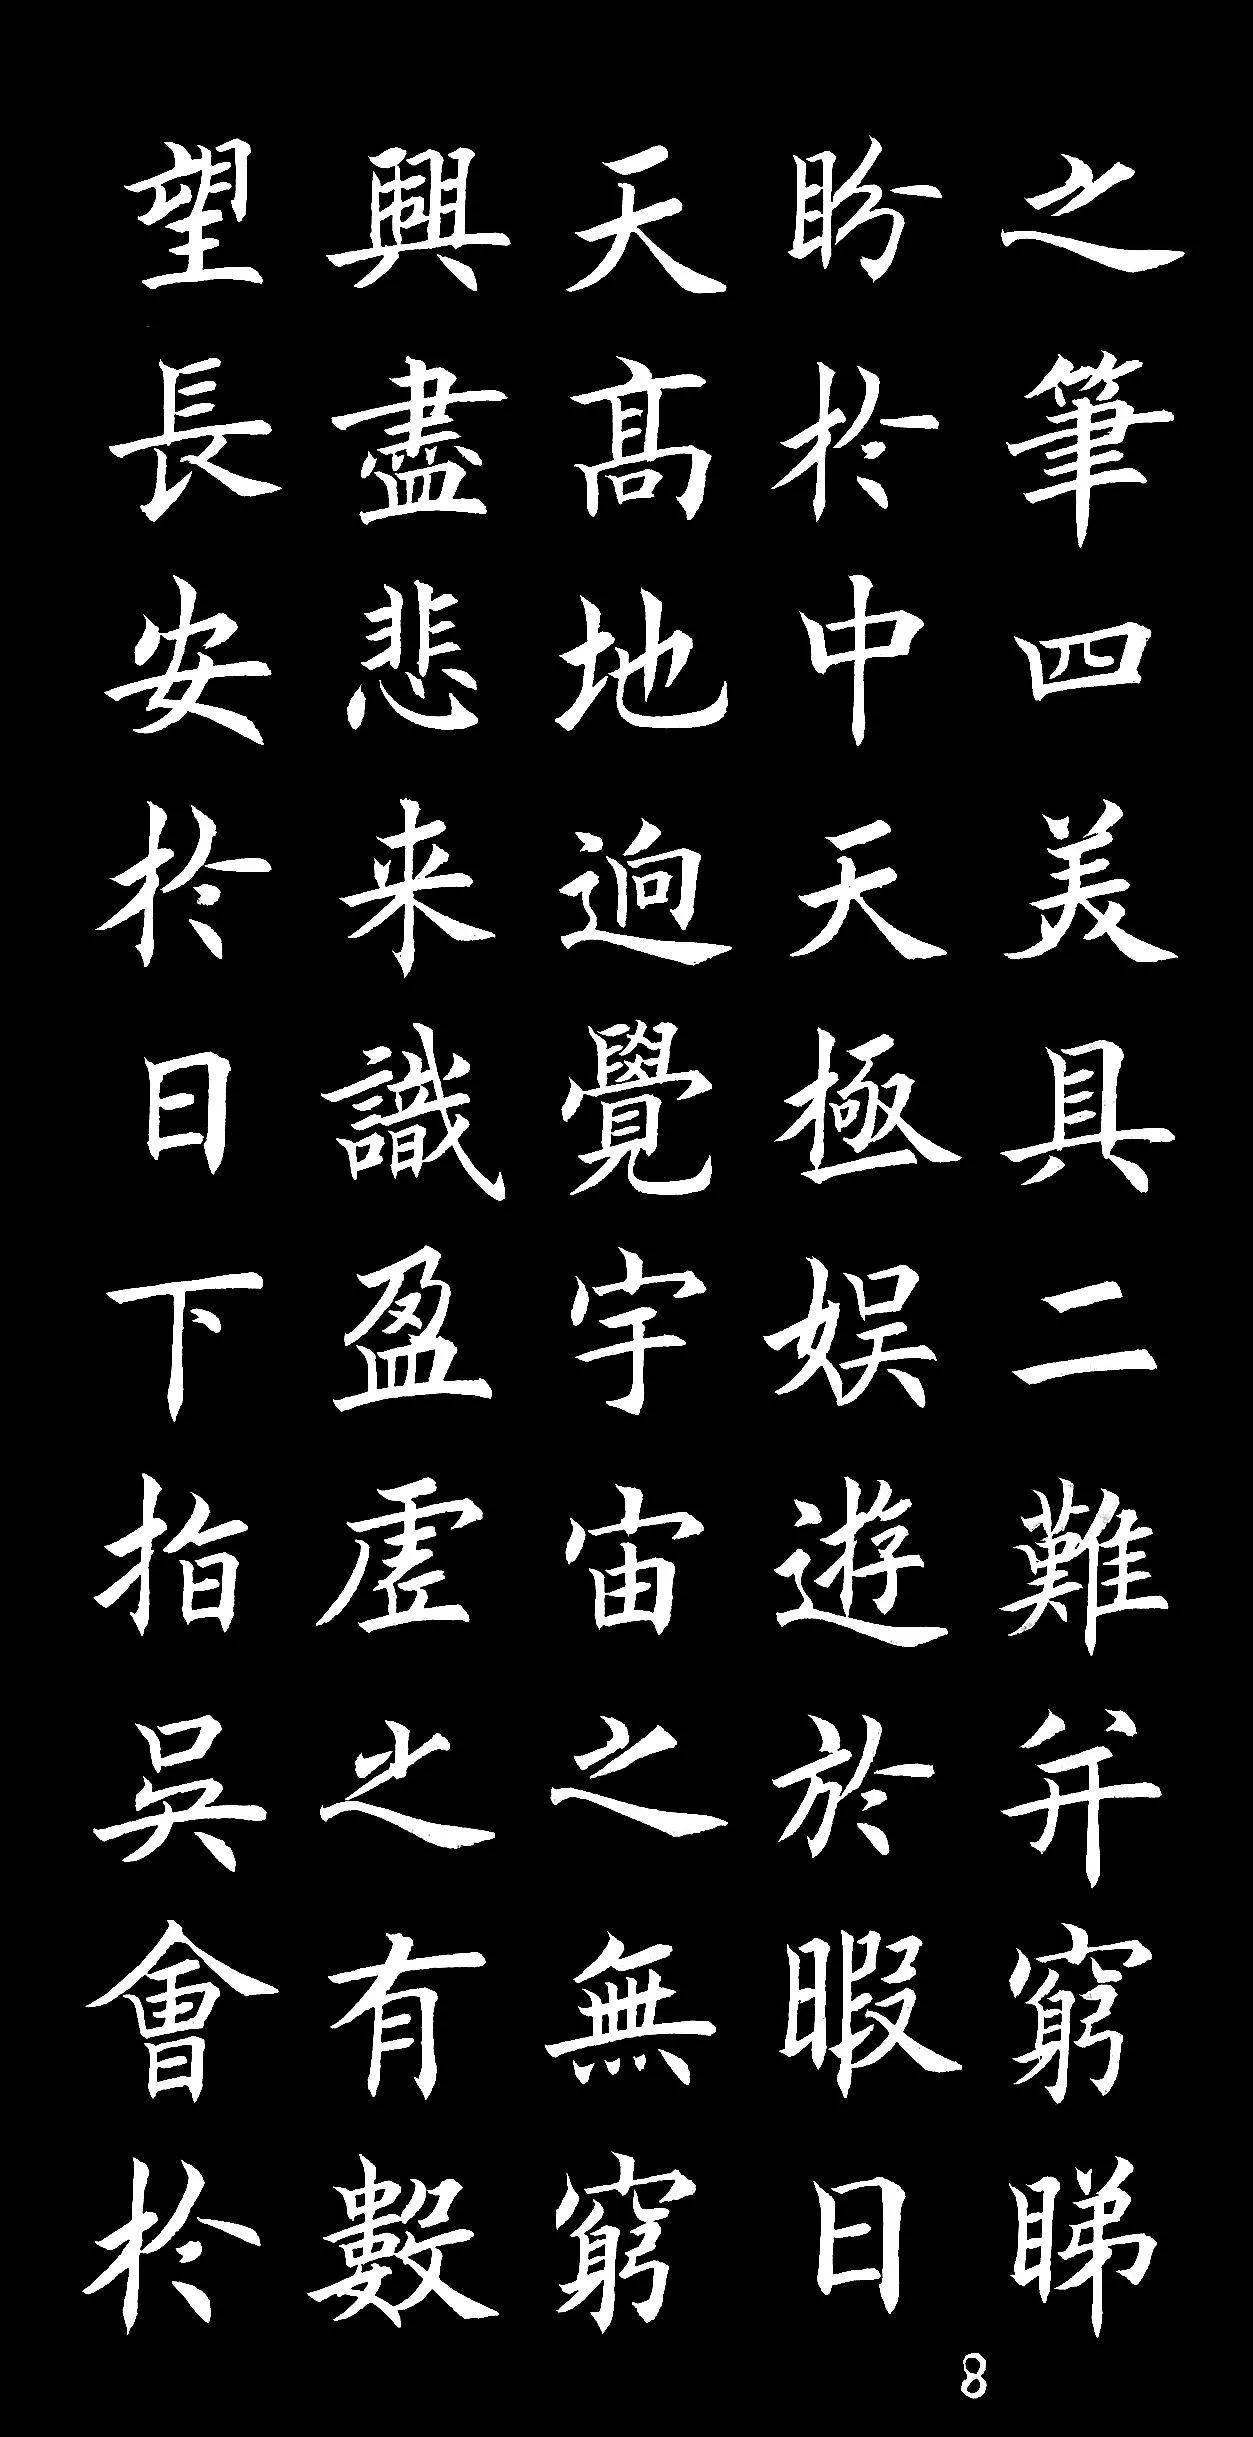 之筆四美具二難并窮睇
盼於中天極娛遊於暇日
天高地迥覺宇宙之無窮
興盡悲来識盈虛之有數
望長安於日下指吳會於
8